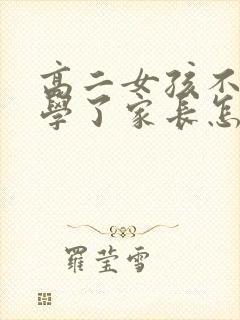 高二女孩不
學了家長怎
羅莹雪